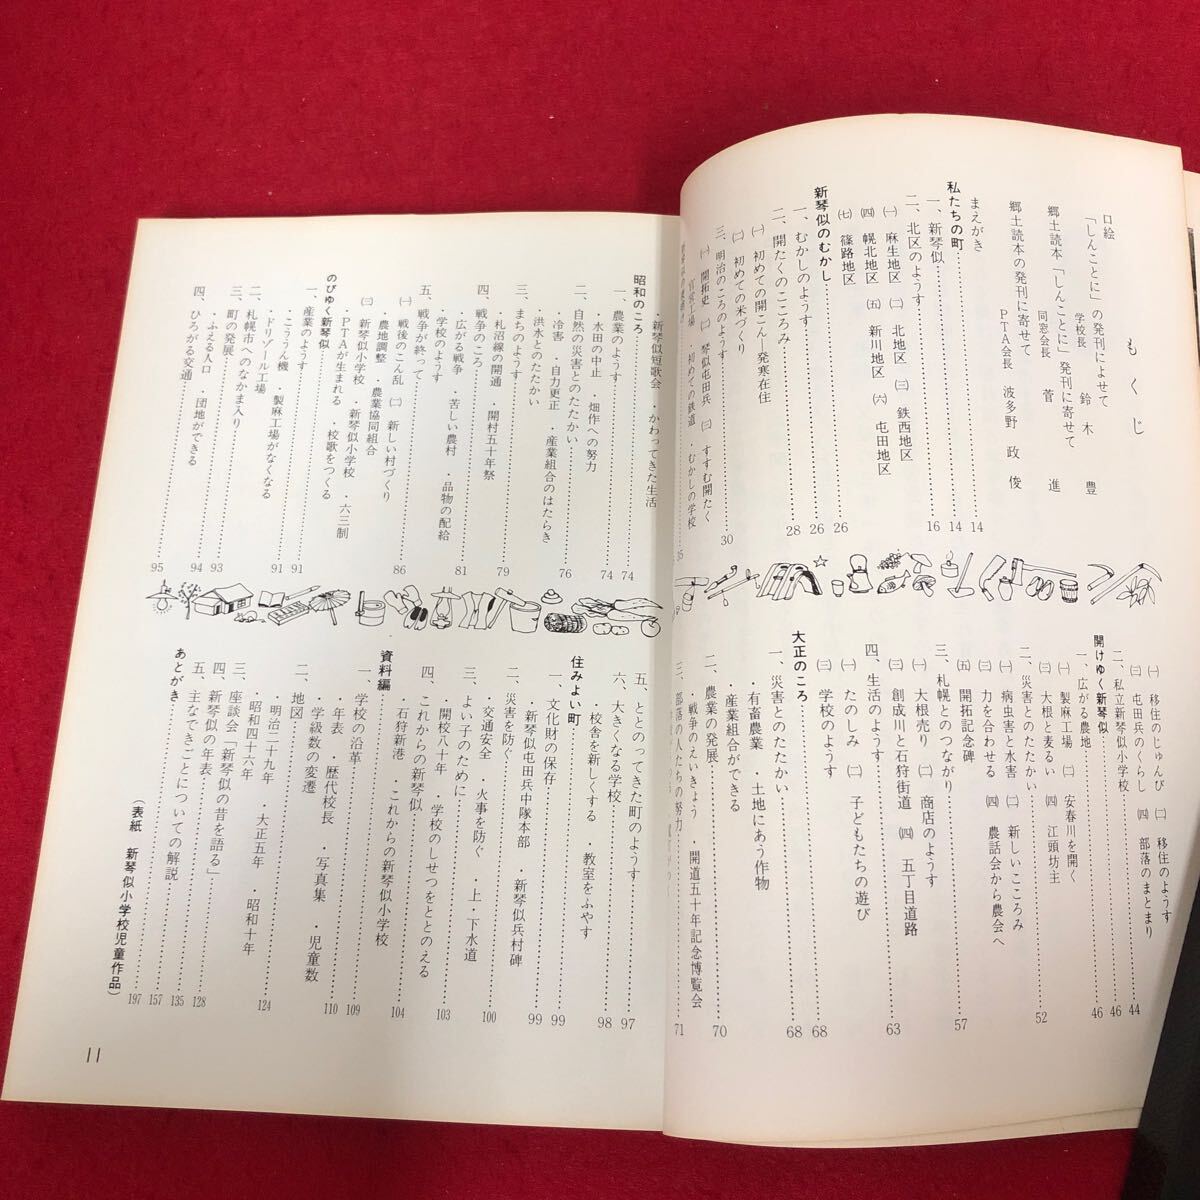 もくじ
口絵
「しんことに」の発刊によせて
学校長 鈴木 豊
郷土読本「しんことに」発刊に寄せて
同窓会長 菅 進
郷土読本の発刊に寄せて
PTA会長 波多野 政俊
まえがき……14
私たちの町……14
一、新琴似……16
二、北区のようす
㈠ 麻生地区 ㈡ 北地区 ㈢ 鉄西地区
㈣ 幌北地区 ㈤ 新川地区 ㈥ 屯田地区
㈦ 篠路地区……26
新琴似のむかし……26
一、むかしのようす……28
二、開たくのこころみ
㈠ 初めての開こん―発寒在住
㈡ 初めての米づくり
三、明治のころのようす……30
㈠ 開拓史 ㈡ 琴似屯田兵 ㈢ すすむ開たく
・官営工場 ・初めての鉄道 ・むかしの学校
……35
㈠ 移住のじゅんび ㈡ 移住のようす
㈢ 屯田兵のくらし ㈣ 部落のまとまり
二、私立新琴似小学校……44
開けゆく新琴似……46
一、広がる農地……46
㈠ 製麻工場 ㈡ 安春川を開く
㈢ 大根と麦るい ㈣ 江頭坊主
二、災害とのたたかい……52
㈠ 病虫害と水害 ㈡ 新しいこころみ
㈢ 力を合わせる ㈣ 農話会から農会へ
㈤ 開拓記念碑
三、札幌とのつながり……57
㈠ 大根売り ㈡ 商店のようす
㈢ 創成川と石狩街道 ㈣ 五丁目道路
四、生活のようす……63
㈠ たのしみ ㈡ 子どもたちの遊び
㈢ 学校のようす
大正のころ……68
一、災害とのたたかい……68
・有畜農業 ・土地にあう作物
・産業組合ができる
二、農業の発展……70
・戦争のえいきょう ・開道五十年記念博覧会
三、部落の人たちの努力……71
・新琴似短歌会 ・かわってきた生活
昭和のころ……74
一、農業のようす……74
・水田の中止 ・畑作への努力
二、自然の災害とのたたかい……76
・冷害 ・自力更正 ・産業組合のはたらき
・洪水とのたたかい
三、まちのようす……79
・札沼線の開通 ・開村五十年祭
四、戦争のころ……81
・広がる戦争 ・苦しい農村 ・品物の配給
・学校のようす
五、戦争が終って……86
㈠ 戦後のこん乱 ㈡ 新しい村づくり
・農地調整 ・農業協同組合
㈢ 新琴似小学校
・PTAが生まれる ・新琴似小学校 ・六三制
・校歌をつくる
のびゆく新琴似……91
一、産業のようす……91
・こううん機 ・製麻工場がなくなる
・ドリゾール工場
二、札幌市へのなかま入り……93
三、町の発展……94
・ふえる人口 ・団地ができる
四、ひろがる交通……95
五、ととのってきた町のようす……97
六、大きくなる学校……98
・校舎を新しくする ・教室をふやす
住みよい町……99
一、文化財の保存……99
・新琴似屯田兵中隊本部 新琴似兵村碑
二、災害を防ぐ……100
・交通安全 ・火事を防ぐ ・上・下水道
三、よい子のために……103
・開校八十年 ・学校のしせつをととのえる
四、これからの新琴似……104
・石狩新港 ・これからの新琴似小学校
資料編……109
一、学校の沿革……110
・年表 ・歴代校長 ・写真集 ・児童数
・学級数の変遷
二、地図……124
・明治二十九年 ・大正五年 ・昭和十年
・昭和四十六年
三、座談会「新琴似の昔を語る」……128
四、新琴似の年表……135
五、主なできごとについての解説……157
あとがき……197
（表紙 新琴似小学校児童作品）
11